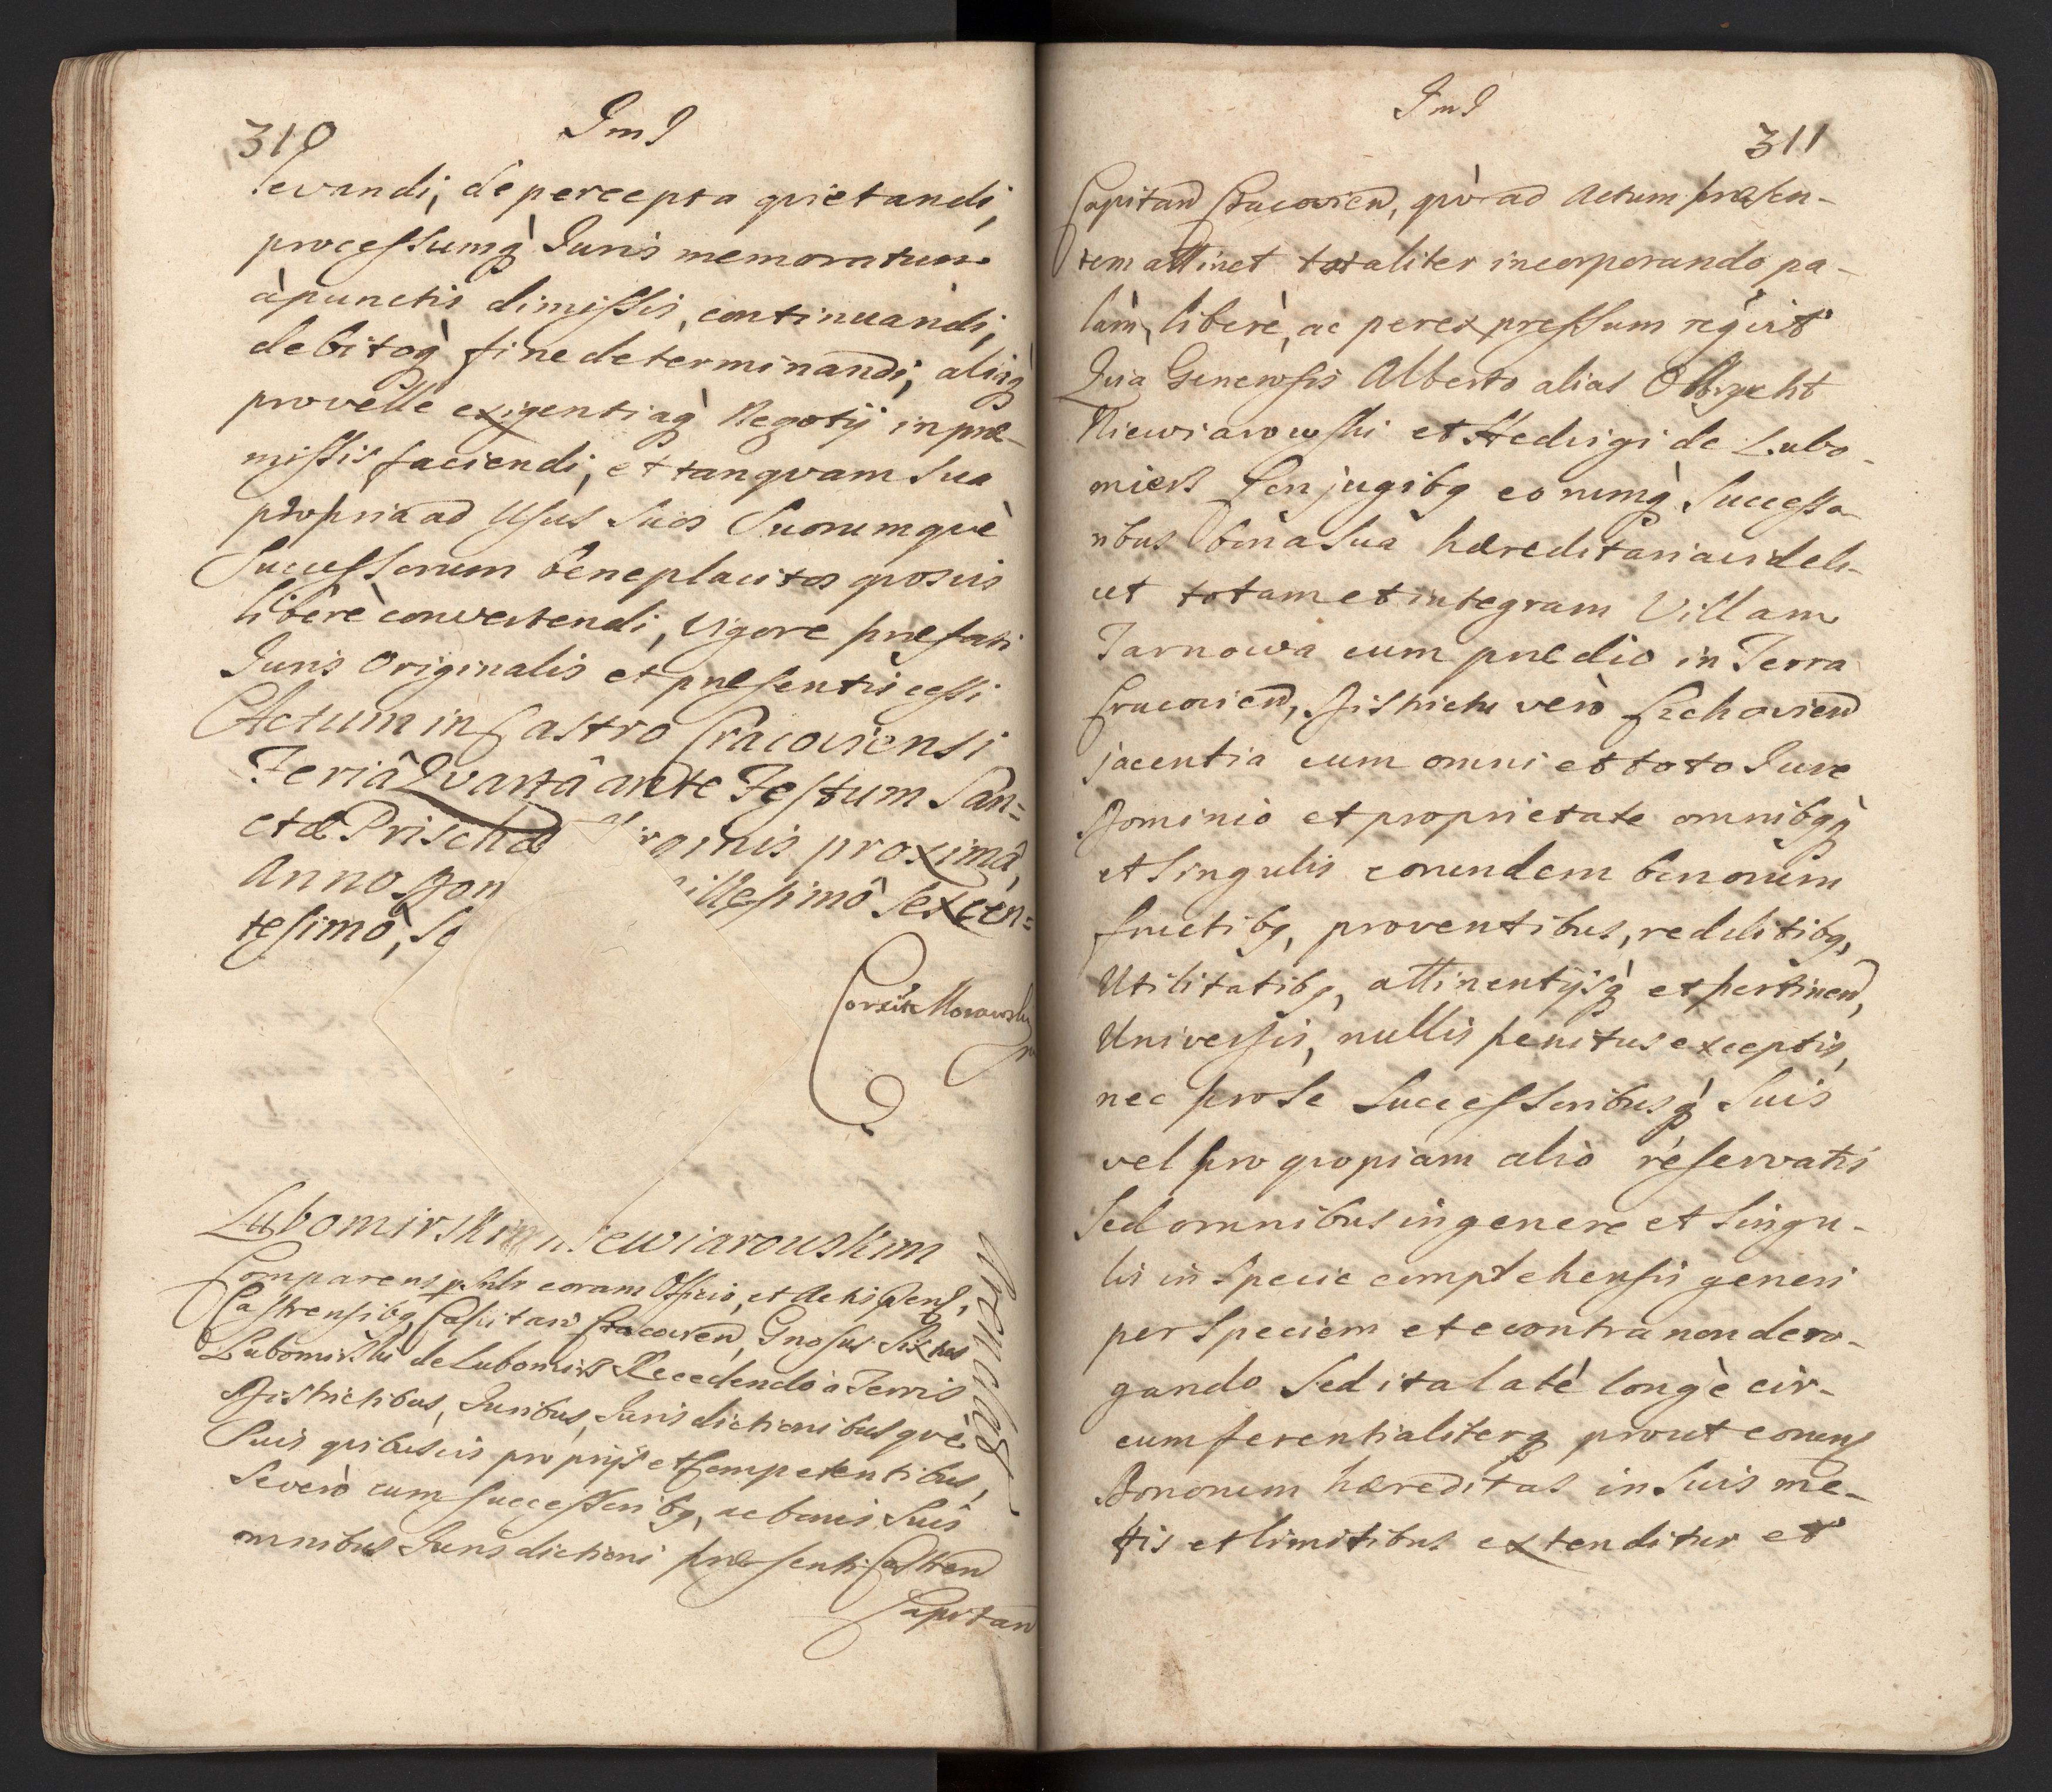 310
ImI
levandi, de percepta quietandi,
processumq̀ Juris memoratum
à punctis dimissis, continuandi,
debitoq̀ fine determinandi, aliaq̀
pro velle exigentiaq̀ Negotij in præ-
missis faciendi, et tanquam sua
propria ad Usus suos Suorumquè
Successorum beneplacitos quosvis
liberè convertendi, vigore præfati
Juris Originalis et præsentis cessi
Actum in Castro Cracoviensi
Feriâ Quartâ ante Festum San=
ctæ Priscæ Virginis proximâ,
Anno Dom illesimô Sexcen=
tesimô, Se
Lubomirski Niewiarowskim
Comparens coram Officio, et Actis
Castrensibq Capitan Cracovien, Gnosus Sixtus
Lubomirski de Lubomirz Recedendo à Terris
Districtibus, Juribus, Jurisdictionibusquè
Suis quibusvis proprijs et Competentibus,
Se verò cum successoribq, ac bonis Suis
omnibus Jurisdictioni præsenti Castren
Capitan
ImI
311
Capitan Cracovien, quò ad Actum præsen-
tem attinet totaliter incorporando pa-
làm, liberè, ac per expressum
Quia Generosis Alberto alias Olbrycht
Niewiarowski et Hedvigi de Lubo-
mierz Conjugibq eorumq̀ Successo-
ribus bona sua hæreditaria videli-
cet totam et integram Villam
Tarnowa cum prædio in Terra
Cracovien, Districtu verò Szchovien
jacentia cum omni et toto Jure
Dominio et proprietate omnibqq̀
et singulis eorundem bonorum
fructibq, proventibus, redditibq,
Utilitatibq, attinentijsq̀ et pertinen,
Universis, nullis penitus exceptis,
nec pro se Successoribusq̀ Suis
vel pro quopiam aliò reservatis
Sed omnibus in genere et singu-
lis in specie comprehensis generi
per Speciem et econtra non dero-
gando Sed ita latè longè cir-
cumferentialiterq prout eorum
Bonorum hæreditas in suis me-
tis et limitibus extenditur et